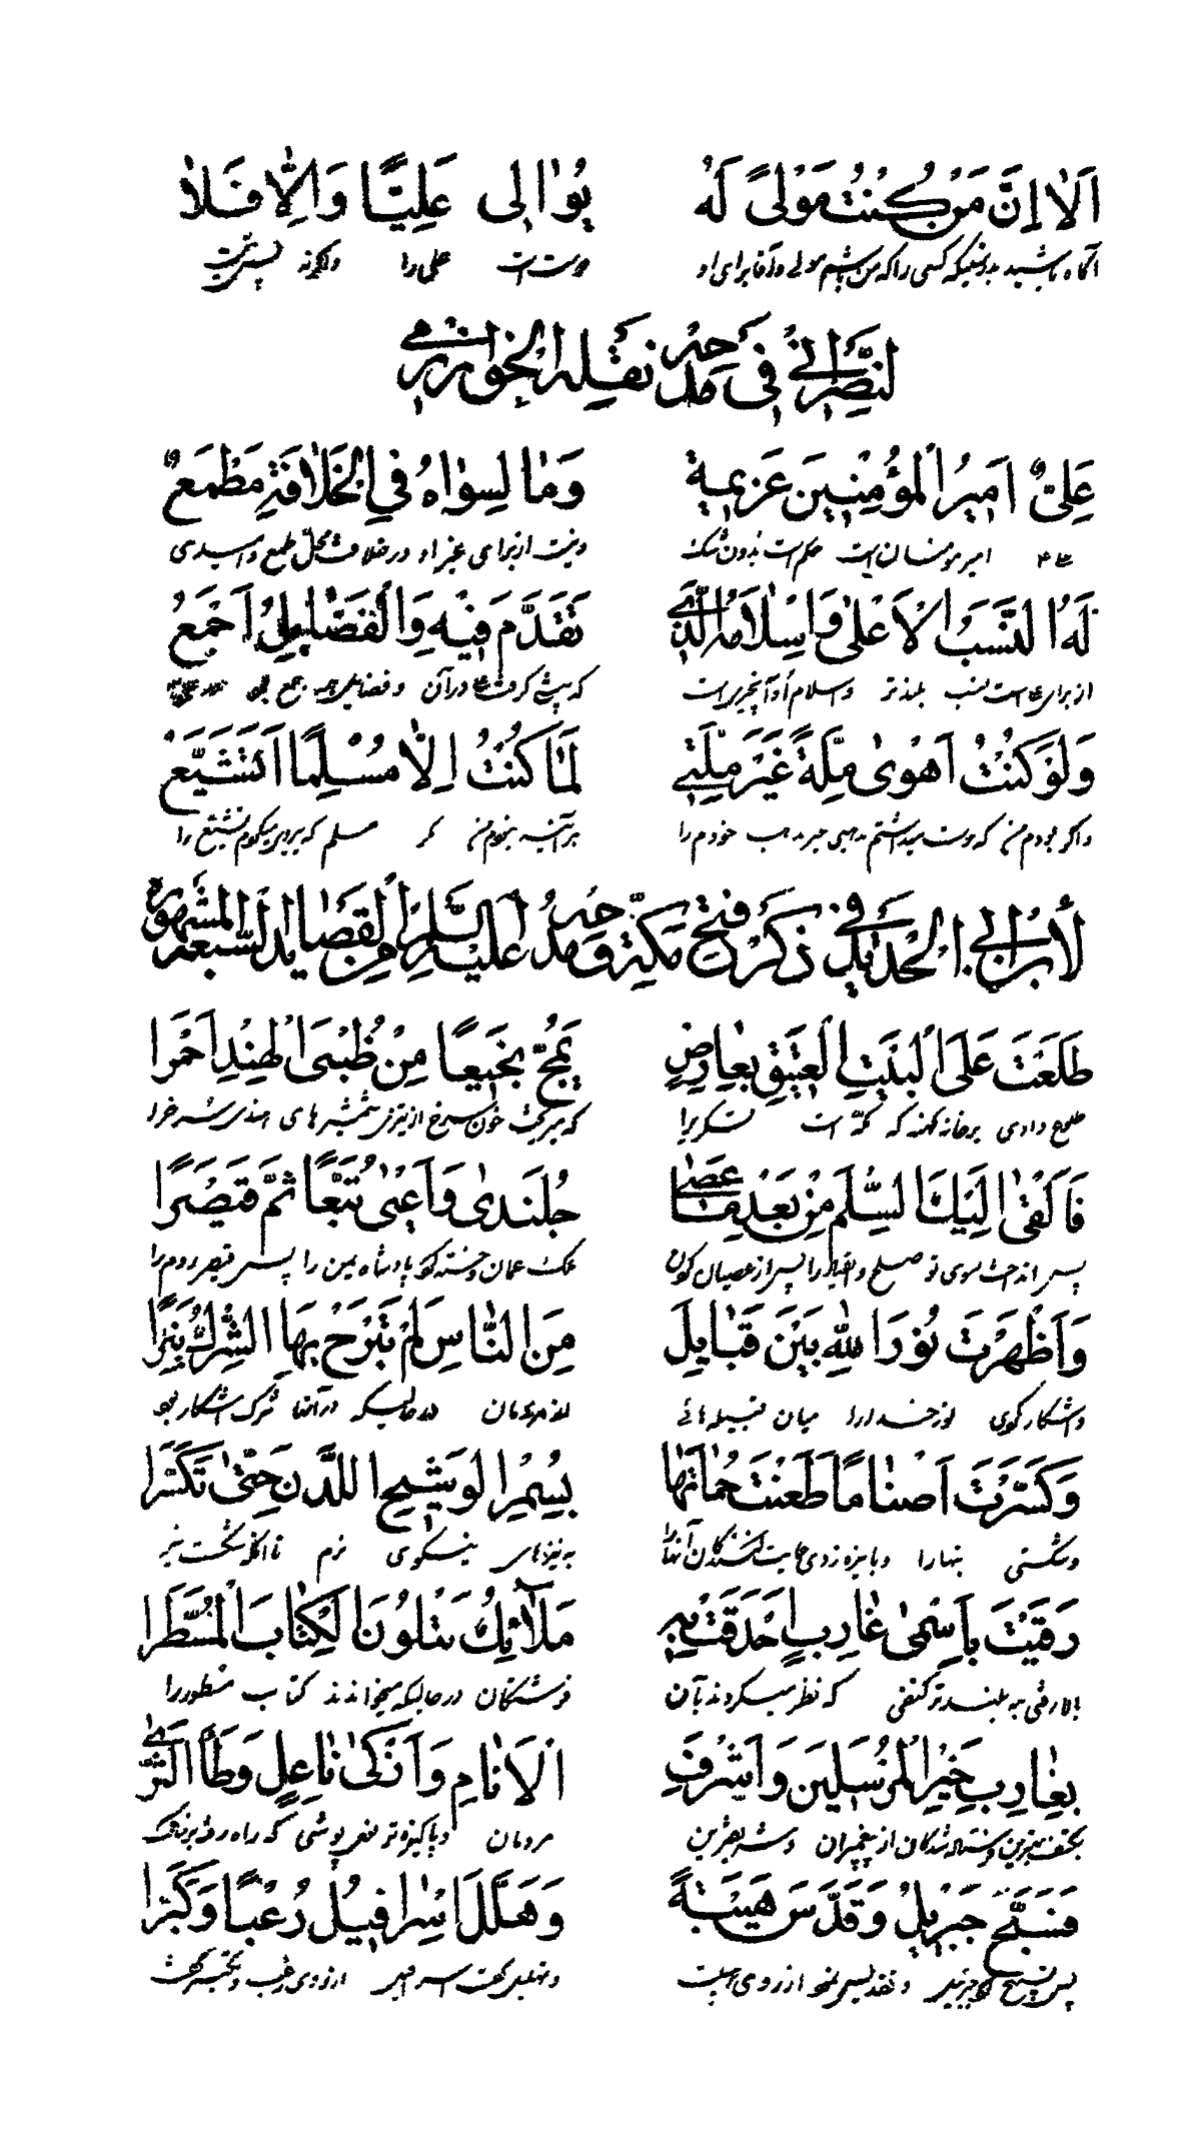 اَلٰا اِنَّ مَنْ كُنْتُ مَوْلىً لَهُ يُوٰالِى عَلِيًّا وَاِلّٰا فَلاٰ
آگاه باشید بدرستیکه کسی را که من باشم مولی و آقا برای او دوست است علی را واگرنه پس نیست
لِنَصْرٰانِیٍّ فِی مَدْحِهِ نَقَلَهُ الْخَوٰارِزْمِی
عَلِىٌّ اَمِيرُ الْمُؤْمِنِينَ عَزِيمَةٍ وَمٰا لِسِوٰاهُ فِى الْخَلٰافَةِ مَطْمَعٌ
امیر مؤمنان است حکم است بدون شک ونیست از برای غیر او در خلافت محل طمع و امیدی
لَهُ النَّسَبُ الْاَعْلىٰ وَاِسْلٰامُهُ الَّذِى تَقَدَّمَ فِيهِ وَالْفَضٰايِلُ اَجْمَعُ
از برای است نسب بلندتر و اسلام او آنچیزیست که پیشی گرفت در آن و فضایل همه جمع
وَلَوْ كُنْتُ اَهْوىٰ مِلَّةً غَيْرَ مِلَّتِى لَمٰا كُنْتُ اِلّٰا مُسْلِمًا اَتَشَيَّعُ
واگر بودم من که دوست میداشتم مذهبی جز مذهب خودم را هرآینه نبودم من مگر مسلم که میگویم تشیع را
لِأَبْنِ اَبِی الْحَدِیدِ فِی ذِكْرِ فَتْحِ مَكَّةَ وَمَدْحِهِ عَلَيْهِ السَّلٰامُ مِنَ الْقَصٰايِدِ السَّبْعَةِ الْمَشْهُورَةِ
طَلَعْتَ عَلَى الْبَيْتِ الْعَتِيقِ بِعٰارِضٍ يَمُجُّ نَجِيعًا مِنْ ظُبَى الْهِنْدِ اَحْمَرا
طلوع دادی بر خانه کهنه که مکه است لشکریرا که میریخت خون سرخ از تیزی شمشیرهای هندی
فَاَلْقىٰ اِلَيْكَ السِّلْمَ مِنْ بَعْدِ مٰا عَصىٰ جُلَنْدىٰ وَاَعْيىٰ تُبَّعًا ثُمَّ قَيْصَرًا
پس انداخت سوی تو صلح و انقیاد را پس از عصیان کردن ملک عمان و خسته کرد پادشاه یمن را پس قیصر روم را
وَاَظْهَرْتَ نُورَ اللّٰهِ بَيْنَ قَبٰايِلَ مِنَ النّٰاسِ لَمْ تَبْرَحْ بِهَا الشِّرْكُ نَيِّرًا
و آشکار کردی نور خدا را میان قبیله هائی از مردمان در حالیکه در آنها شرک آشکار بود
وَكَسَّرْتَ اَصْنٰامًا طَعَنْتَ حُمٰاتَهٰا بِسُمْرِ الْوَشِيجِ اللَّدْنِ حَتّىٰ تَكَسَّرا
و شکستی بتها را و با نیزه زدی حمایت کنندگان آنها را به نیزهای نیکوی نرم تا آنکه شکست
رَقَيْتَ بِاَسْمىٰ غٰارِبٍ اَحْدَقَتْ بِهِ مَلٰآئِكُ يَتْلُونَ الْكِتٰابَ الْمُسَطَّرا
بالا رفتی به بلندتر کتفی که نظر میکردند بآن فرشتگان در حالیکه میخواندند کتاب مسطور را
بِغٰارِبِ خَيْرِ الْمُرْسَلِينَ وَاَشْرَفِ الْاَنٰامِ وَاَزْكىٰ نٰاعِلٍ وَطَأَ الثَّرىٰ
بکتف بهترین فرستاده شدگان از پیغمبران و شریفترین مردمان و پاکیزه تر نعل پوشی که راه رفت بر خاک
فَسَبَّحَ جِبْرِيلُ وَقَدَّسَ هَيْبَةً وَهَلَّلَ اِسْرٰافِيلُ رُعْبًا وَكَبَّرا
پس تسبیح گفت جبرئیل و تقدیس نمود از روی هیبت و تهلیل گفت اسرافیل از روی رعب و تکبیر گفت